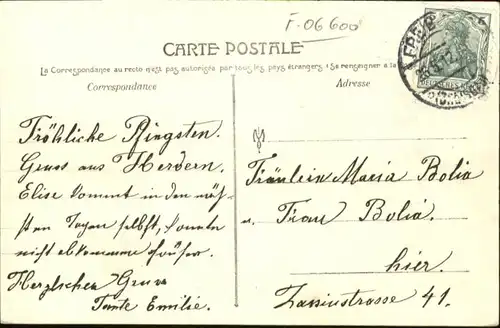 F-06600
CARTE POSTALE
La Correspondance au recto n'est pas autorisée par tous les pays étrangers (Se renseigner à la
Correspondance
Adresse
Fröhliche Pfingsten.
Gruss aus Herdern.
Elise kommt in den näch-
sten Tagen selbst, konnte
nicht abkommen früher.
Herzlichen Gruss
Tante Emilie.
Fräulein Maria Bolia
u. Frau Bolia.
hier.
Zasiusstrasse 41.